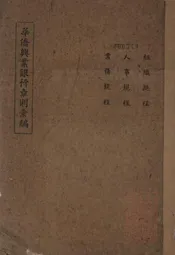 華僑興業銀行章則彙編
組織規程
人事規程
業務規程